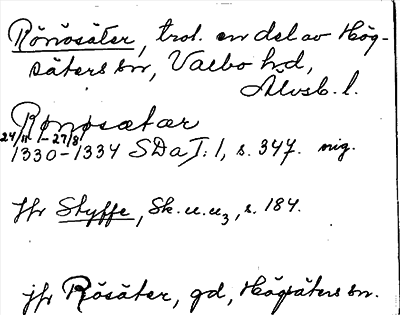 Rönösäter, trol. en del av Hög-
säters sn, Valbo hd,
Älvsb. l.
Rønøsætær
24/11 - 27/8
1330-1334 SDa, I: 1, s. 347. nig.
Jfr Styffe, Sk. u. u3, s. 184.
jfr Rösäter, gd, Högsäters sn.